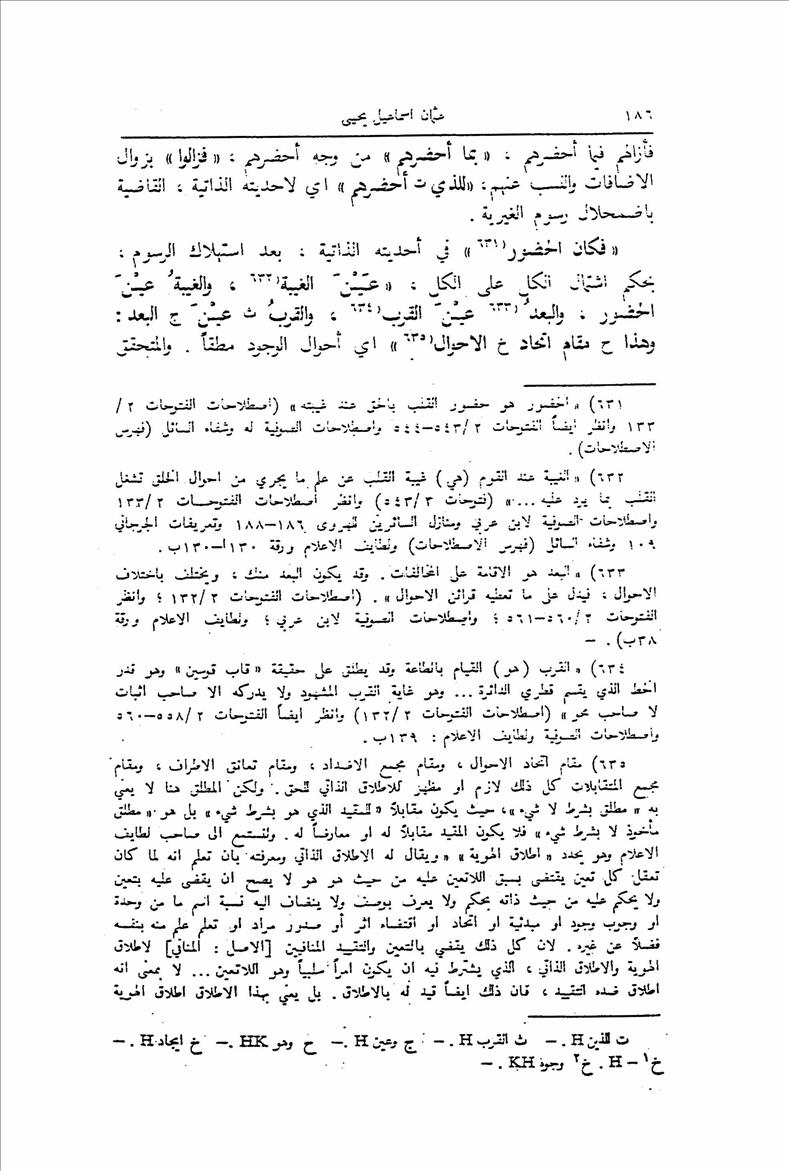 ١٨٦ عثمان اسماعيل يحيى
فأزالهم فيما أحضرهم ، « بما أحضرهم » من وجه أحضرهم ؛ « فزالوا » بزوال
الاضافات والنسب عنهم؛ «للذي ت أحضرهم » اي لاحديته الذاتية ، القاضية
باضمحلال رسوم الغيرية .
« فكان الحضور(٦٣١ » في أحديته الذاتية ، بعد استهلاك الرسوم ،
بحكم اشتمال الكل على الكل ، « عَيْنَ الغيبة(٦٣٢ ، والغيبةُ عيْنَ
الحضور ، والبعدُ(٦٣٣ عيْنَ القرب(٦٣٤ ، والقربُ ث عيْنَ ج البعد :
وهذا ح مقام اتحاد خ الاحوال(٦٣٥ » اي أحوال الوجود مطقاً . والمتحقق
٦٣١) « الحضور هو حضور القلب بالحق عند غيبته » (اصطلاحات الفتوحات ٢/
١٣٣ وانظر ايضاً الفتوحات ٢/٥٤٣–٥٤٤ واصطلاحات الصوفية له وشفاء السائل (فهرس
الاصطلاحات) .
٦٣٢) « الغيبة عند القوم (هي) غيبة القلب عن علم ما يجري من احوال الخلق لشغل
القلب بما يرد عليه ...» (فتوحات ٢/٥٤٣) وانظر اصطلاحات الفتوحات ٢/١٣٣
واصطلاحات الصوفية لابن عربي ومنازل السائرين للهروى ١٨٦–١٨٨ وتعريفات الجرجاني
١٠٩ وشفاء السائل (فهرس الاصطلاحات) ولطايف الاعلام ورقة ١٣٠ا–١٣٠ب .
٦٣٣) « البعد هو الاقامة على المخالفات . وقد يكون البعد منك ، ويختلف باختلاف
الاحوال ، فيدل على ما تعطيه قرائن الاحوال » . (اصطلاحات الفتوحات ٢/١٣٢ ؛ وانظر
الفتوحات ٢/٥٦٠–٥٦١ ؛ واصطلاحات الصوفية لابن عربي ؛ ولطايف الاعلام ورقة
٣٨ب) . –
٦٣٤) « القرب (هو) القيام بالطاعة وقد يطلق على حقيقة « قاب قوسين » وهو قدر
الخط الذي يقسم قطري الدائرة ... وهو غاية القرب المشهود ولا يدركه الا صاحب اثبات
لا صاحب محو » (اصطلاحات الفتوحات ٢/١٣٢) وانظر ايضاً الفتوحات ٢/٥٥٨–٥٦٠
واصطلاحات الصوفية ولطايف الاعلام : ١٣٩ب .
٦٣٥) مقام اتحاد الاحوال ، ومقام مجمع الاضداد ، ومقام تعانق الاطراف ، ومقام
مجمع المتقابلات كل ذلك لازم او مظهر للاطلاق الذاتي للحق . ولكن المطلق هنا لا يعني
به « مطلق بشرط لا شيء» ، حيث يكون مقابلاً « للمقيد الذي هو بشرط شيء » بل هو « مطلق
مأخوذ لا بشرط شيء » فلا يكون المقيد مقابلاً له او معارضاً له . ولنستمع الى صاحب لطايف
الاعلام وهو يحدد « اطلاق الهوية » « ويقال له الاطلاق الذاتي ومعرفته بان تعلم انه لما كان
تعقل كل تعين يقتضى بسبق اللاتعين عليه من حيث هو هو لا يصح ان يقضى عليه بتعين
ولا يحكم عليه من حيث ذاته بحكم ولا يعرف بوصف ولا ينضاف اليه نسبة اسم ما من وحدة
او وجوب وجود او مبدئية او اتحاد او اقتضاء اثر أو صدور مراد او تعلم علم منه بنفسه
فضلاً عن غيره . لان كل ذلك يقضي بالتعين والتقييد المنافيين [الاصل : المنافي] لاطلاق
الهوية والاطلاق الذاتي ، الذي يشترط فيه ان يكون امراً سلبياً وهو اللاتعين ... لا بمعنى انه
اطلاق ضده التقييد ، فان ذلك ايضاً قيد له بالاطلاق . بل يعني بهذا الاطلاق اطلاق الهوية
ت للذين H .– ث القرب H .– ج وعين H .– ح وهو HK .– خ ايجاد H .–
خ١ – H . خ٢ وجوة KH .–